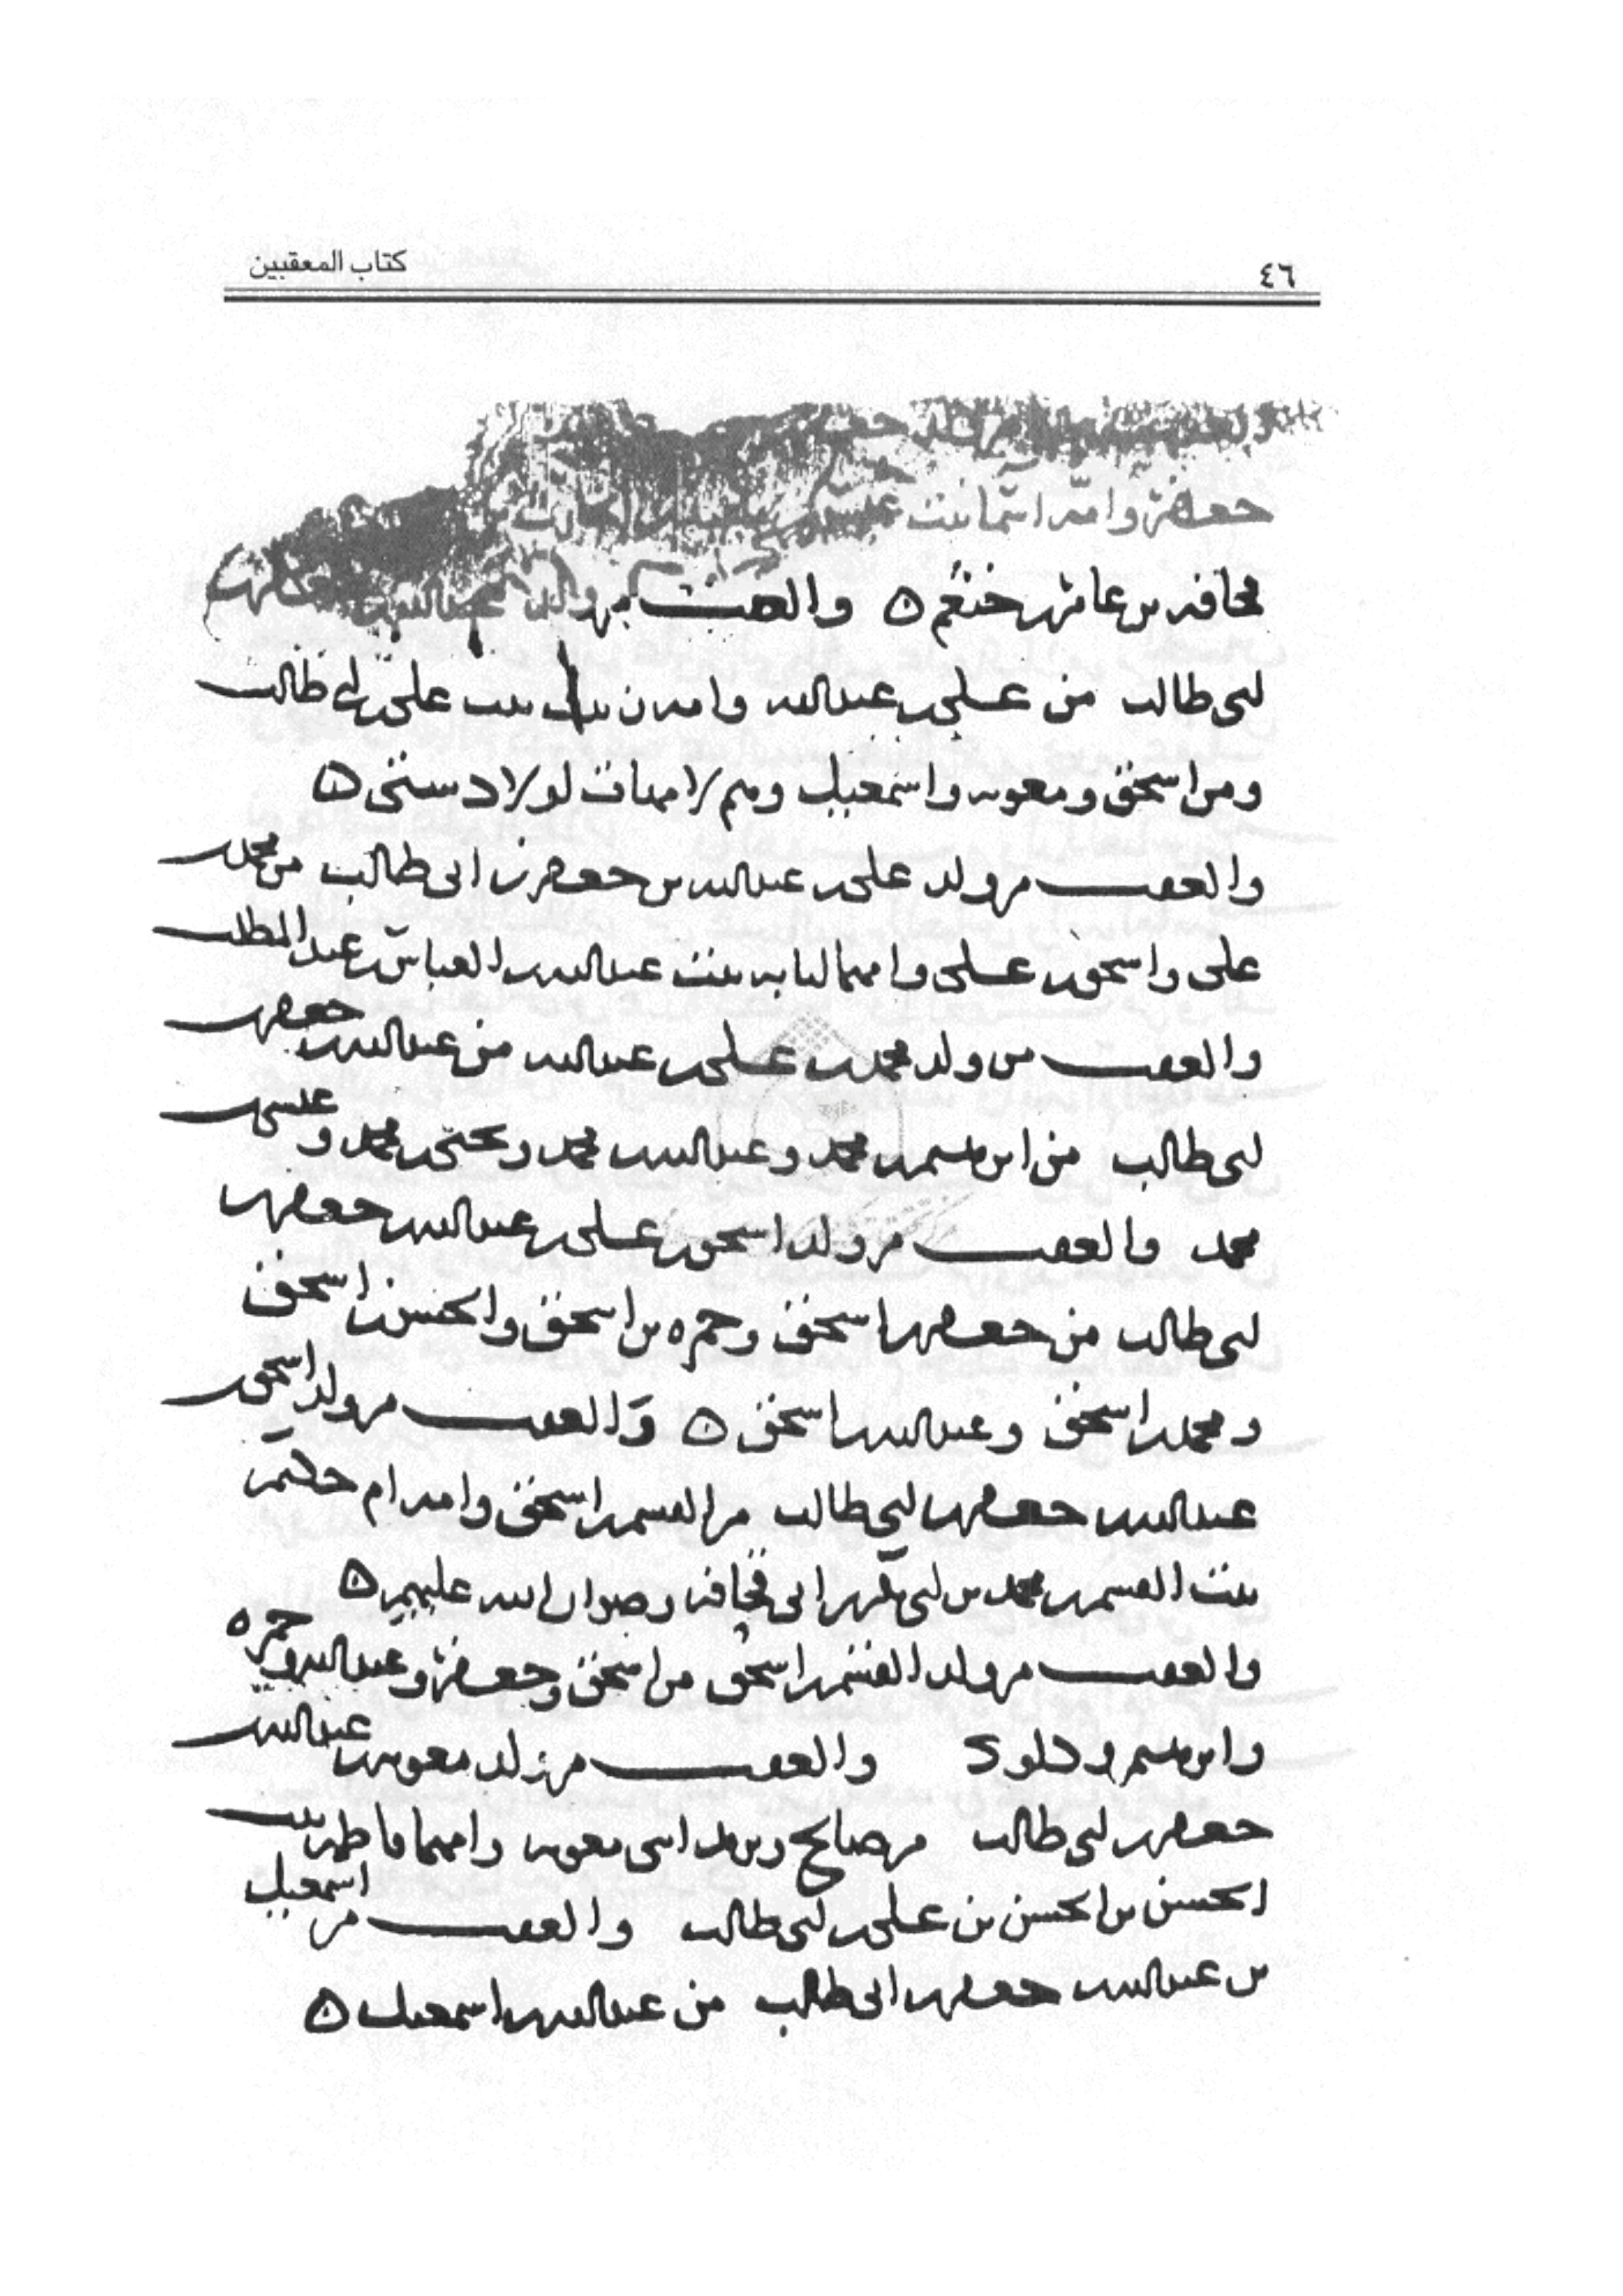 ٤٦
كتاب المعقبين
جعفر وامه اسما بنت
قحافه بن عامر بن خثعم ه والعقب من ولد
ابى طالب من على بن عبدالله وامه زينب بنت على بن ابى طالب
ومن اسحق ومعويه واسمعيل وهم لامهات اولاد ستى ه
والعقب من ولد على بن عبدالله بن جعفر بن ابى طالب من محمد بن
على واسحق بن على وامهما لبابه بنت عبدالله بن العباس بن عبد المطلب
والعقب من ولد محمد بن على بن عبدالله بن جعفر بن
ابى طالب من ابرهيم بن محمد وعبدالله بن محمد ويحيى بن محمد وعيسى بن
محمد والعقب من ولد اسحق بن على بن عبدالله بن جعفر بن
ابى طالب من جعفر بن اسحق وحمزه بن اسحق والحسن بن اسحق
ومحمد بن اسحق وعبدالله بن اسحق ه والعقب من ولد اسحق بن
عبدالله بن جعفر بن ابى طالب من القسم بن اسحق وامه ام حكيم
بنت القسم بن محمد بن ابى بكر بن ابى قحافه رضوان الله عليهم ه
والعقب من ولد القسم بن اسحق من اسحق وجعفر وعبدالله وحمزه
وابرهيم و والعقب من ولد معويه بن عبدالله بن
جعفر بن ابى طالب من صالح ويزيد ابنى معويه وامهما فاطمه بنت
الحسن بن الحسن بن على بن ابى طالب والعقب من اسمعيل
بن عبدالله بن جعفر بن ابى طالب من عبدالله بن اسمعيل ه